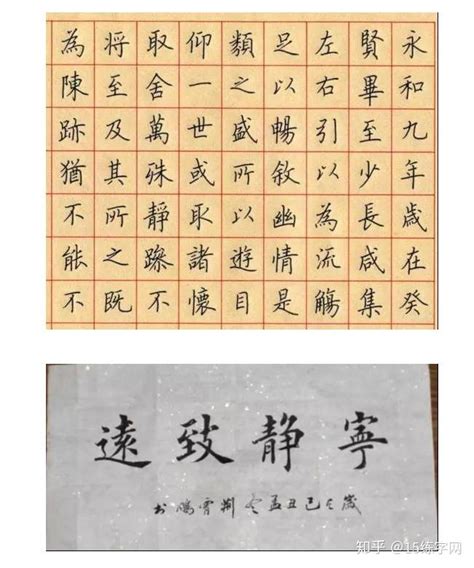 永和九年歲在癸
賢畢至少長咸集
左右引以為流觴
足以暢敘幽情是
類之盛所以遊目
仰一世或取諸懷
取舍萬殊靜躁不
將至及其所之既
為陳跡猶不能不
寧静致遠
歲次己丑孟冬荆霄鵬书
知乎 @15练字网